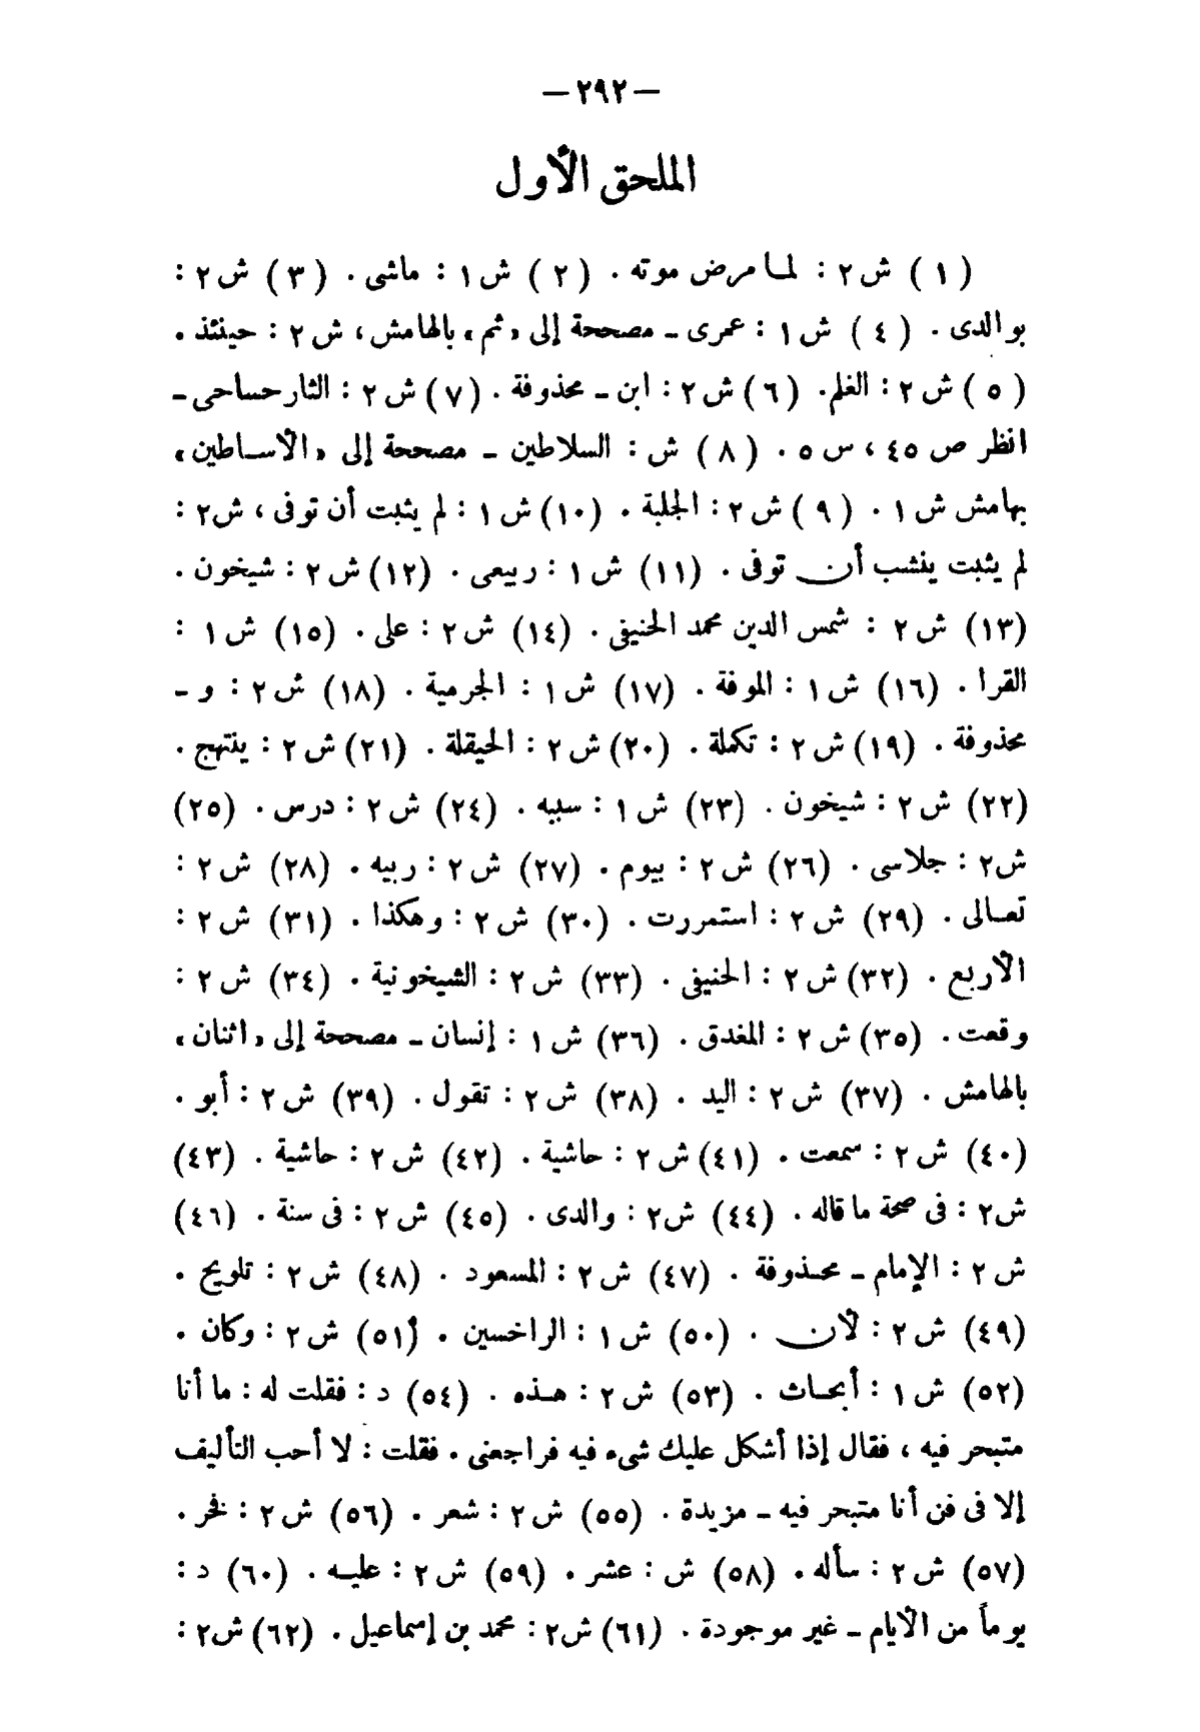 — ٢٩٢ —
الملحق الأول
( ١ ) ش ٢ : لما مرض موته . ( ٢ ) ش ١ : ماشى . ( ٣ ) ش ٢ :
بو الدى . ( ٤ ) ش ١ : عمرى ـ مصححة إلى « ثم » بالهامش ، ش ٢ : حينئذ .
( ٥ ) ش ٢ : الغلم . ( ٦ ) ش ٢ : ابن ـ محذوفة . ( ٧ ) ش ٢ : الثار حساحى ـ
انظر ص ٤٥ ، س ٥ . ( ٨ ) ش : السلاطين ـ مصححة إلى « الأساطين »
بهامش ش ١ . ( ٩ ) ش ٢ : الجلبة . (١٠) ش ١ : لم يثبت أن توفى ، ش ٢ :
لم يثبت ينشب أن توفى . (١١) ش ١ : ربيعى . (١٢) ش ٢ : شيخون .
(١٣) ش ٢ : شمس الدين محمد الحنيفى . (١٤) ش ٢ : على . (١٥) ش ١ :
القرا . (١٦) ش ١ : الموفة . (١٧) ش ١ : الجرمية . (١٨) ش ٢ : و ـ
محذوفة . (١٩) ش ٢ : تكملة . (٢٠) ش ٢ : الحيقلة . (٢١) ش ٢ : ينتهج .
(٢٢) ش ٢ : شيخون . (٢٣) ش ١ : سببه . (٢٤) ش ٢ : درس . (٢٥)
ش ٢ : جلاسى . (٢٦) ش ٢ : بيوم . (٢٧) ش ٢ : ربيه . (٢٨) ش ٢ :
تعالى . (٢٩) ش ٢ : استمررت . (٣٠) ش ٢ : وهكذا . (٣١) ش ٢ :
الأربع . (٣٢) ش ٢ : الحنيفى . (٣٣) ش ٢ : الشيخونية . (٣٤) ش ٢ :
وقعت . (٣٥) ش ٢ : المغدق . (٣٦) ش ١ : إنسان ـ مصححة إلى « اثنان »
بالهامش . (٣٧) ش ٢ : اليد . (٣٨) ش ٢ : تقول . (٣٩) ش ٢ : أبو .
(٤٠) ش ٢ : سمعت . (٤١) ش ٢ : حاشية . (٤٢) ش ٢ : حاشية . (٤٣)
ش ٢ : فى صحة ما قاله . (٤٤) ش ٢ : والدى . (٤٥) ش ٢ : فى سنة . (٤٦)
ش ٢ : الإمام ـ محذوفة . (٤٧) ش ٢ : المسعود . (٤٨) ش ٢ : تلويح .
(٤٩) ش ٢ : لأن . (٥٠) ش ١ : الراخسين . (٥١) ش ٢ : وكان .
(٥٢) ش ١ : أبحاث . (٥٣) ش ٢ : هذه . (٥٤) د : فقلت له : ما أنا
متبحر فيه ، فقال إذا أشكل عليك شىء فيه فراجعنى . فقلت : لا أحب التأليف
إلا فى فن أنا متبحر فيه ـ مزيدة . (٥٥) ش ٢ : شعر . (٥٦) ش ٢ : نخر .
(٥٧) ش ٢ : سأله . (٥٨) ش : عشر . (٥٩) ش ٢ : عليه . (٦٠) د :
يوماً من الأيام ـ غير موجودة . (٦١) ش ٢ : محمد بن إسماعيل . (٦٢) ش ٢ :